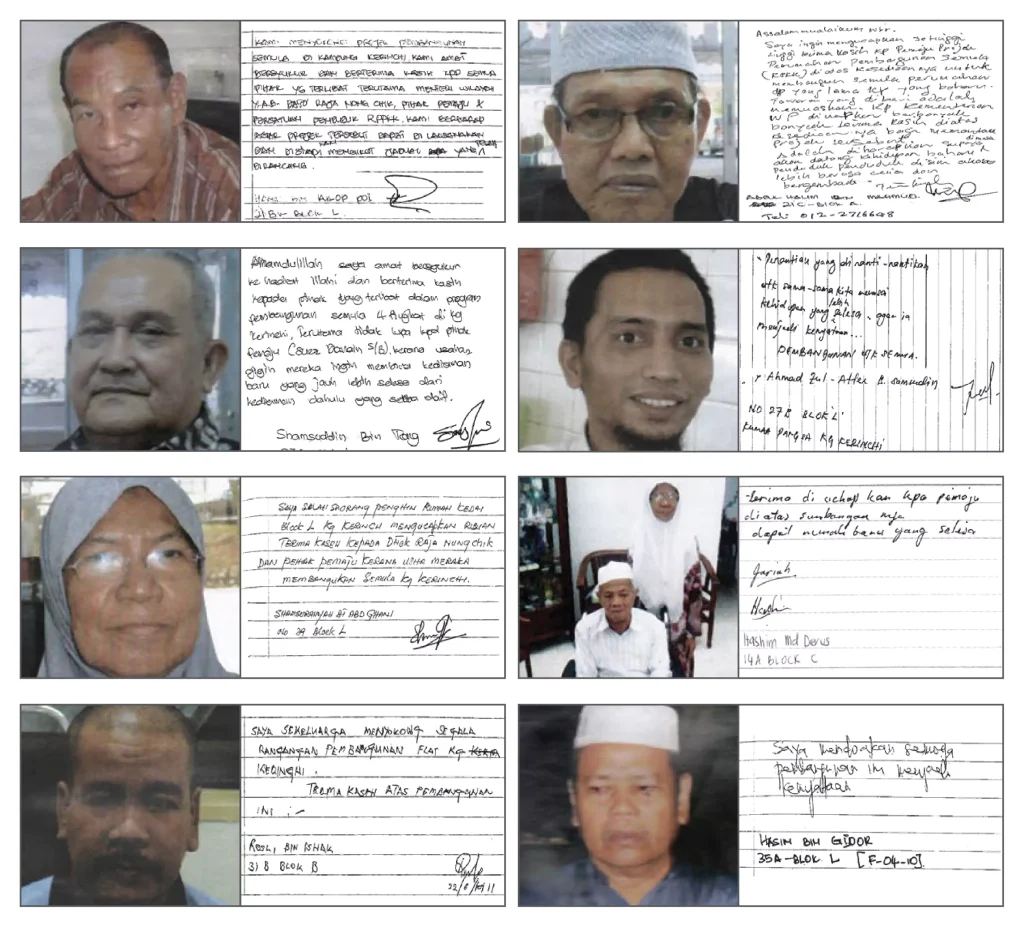 KAMI MENYOKONG PROJEK PEMBANGUNAN
SEMULA DI KAMPUNG KERINCHI. KAMI AMAT
BERSYUKUR DAN BERTERIMA KASIH KPD SEMUA
PIHAK YG TERLIBAT TERUTAMA MENTERI WILAYAH
Y.A.B. DATO RAJA NONG CHIK, PIHAK PEMAJU &
PERSATUAN PENDUDUK RPPKK. KAMI BERHARAP
AGAR PROJEK TERSEBUT DAPAT DI LAKSANAKAN
DAN DISIAPKAN MENGIKUT JADUAL YANG TELAH
DIRANCANG.
BIN KULOP
21B BLOCK L.
Assalamualaikum wbr.
Saya ingin mengucapkan setinggi
tinggi terima kasih kp Pemaju Projek
Perumahan Pembangunan Semula
diatas kesediaannya untuk
membangun semula perumahan
yang lama kp yang baharu.
Tawaran yang diberi adalah
memuaskan. Kp Kementerian
WP diucapkan berbanyak
banyak terima kasih diatas
bagi
Projek tersebut.
Adalah diharapkan supaya
akan datang kehidupan baharu
penduduk penduduk disini akan
lebih berasa ceria dan
BIN MAHMUD
21C-BLOK A.
Tel: 012-2716648
Alhamdulillah saya amat bersyukur
ke hadrat Illahi dan berterima kasih
kepada pihak yang terlibat dalam program
pembangunan semula 4 tingkat di kg
Kerinchi, Terutama tidak lupa kpd pihak
Pemaju S/B), kerana usaha
gigih mereka ingin memberi kediaman
baru yang jauh lebih selesa dari
kediaman dahulu yang serba daif.
Shamsuddin Bin
Penantian yang di nanti-nantikan
utk sama-sama kita menuai
kehidupan yang lebih selesa, agar ia
menjadi kenyataan...
PEMBANGUNAN UTK SEMUA.
Ahmad Zul-Affiz B. Samsudin
NO 27B BLOK L
RUMAH PANGSA KG KERINCHI
SAYA SALAH SEORANG PENGHUNI RUMAH KEDAI
BLOCK L KG KERINCHI MENGUCAPKAN RIBUAN
TERIMA KASIH KEPADA DATOK RAJA NUNGCHIK
DAN PEHAK PEMAJU KERANA USAHA MERAKA
MEMBANGUNKAN SEMULA KG KERINCHI.
BT ABD GHANI
NO 29 BLOCK L
Terima di ucapkan kpa pemaju
di atas sumbangan nya
dapat rumah baru yang selesa
Jariah
Hashi
Hashim Md Derus
14A BLOCK C
SAYA SEKELUARGA MENYOKONG SEGALA
RANCANGAN PEMBANGUNAN FLAT KG
KERINCHI.
TERIMA KASIH ATAS PEMBANGUNAN
INI :-
ROSLI BIN ISHAK
31 B BLOK B
Saya mendoakan semoga
pembangunan ini menjadi
kenyataan
HASIM BIN GIDOR
35A-BLOK L [F-04-10].